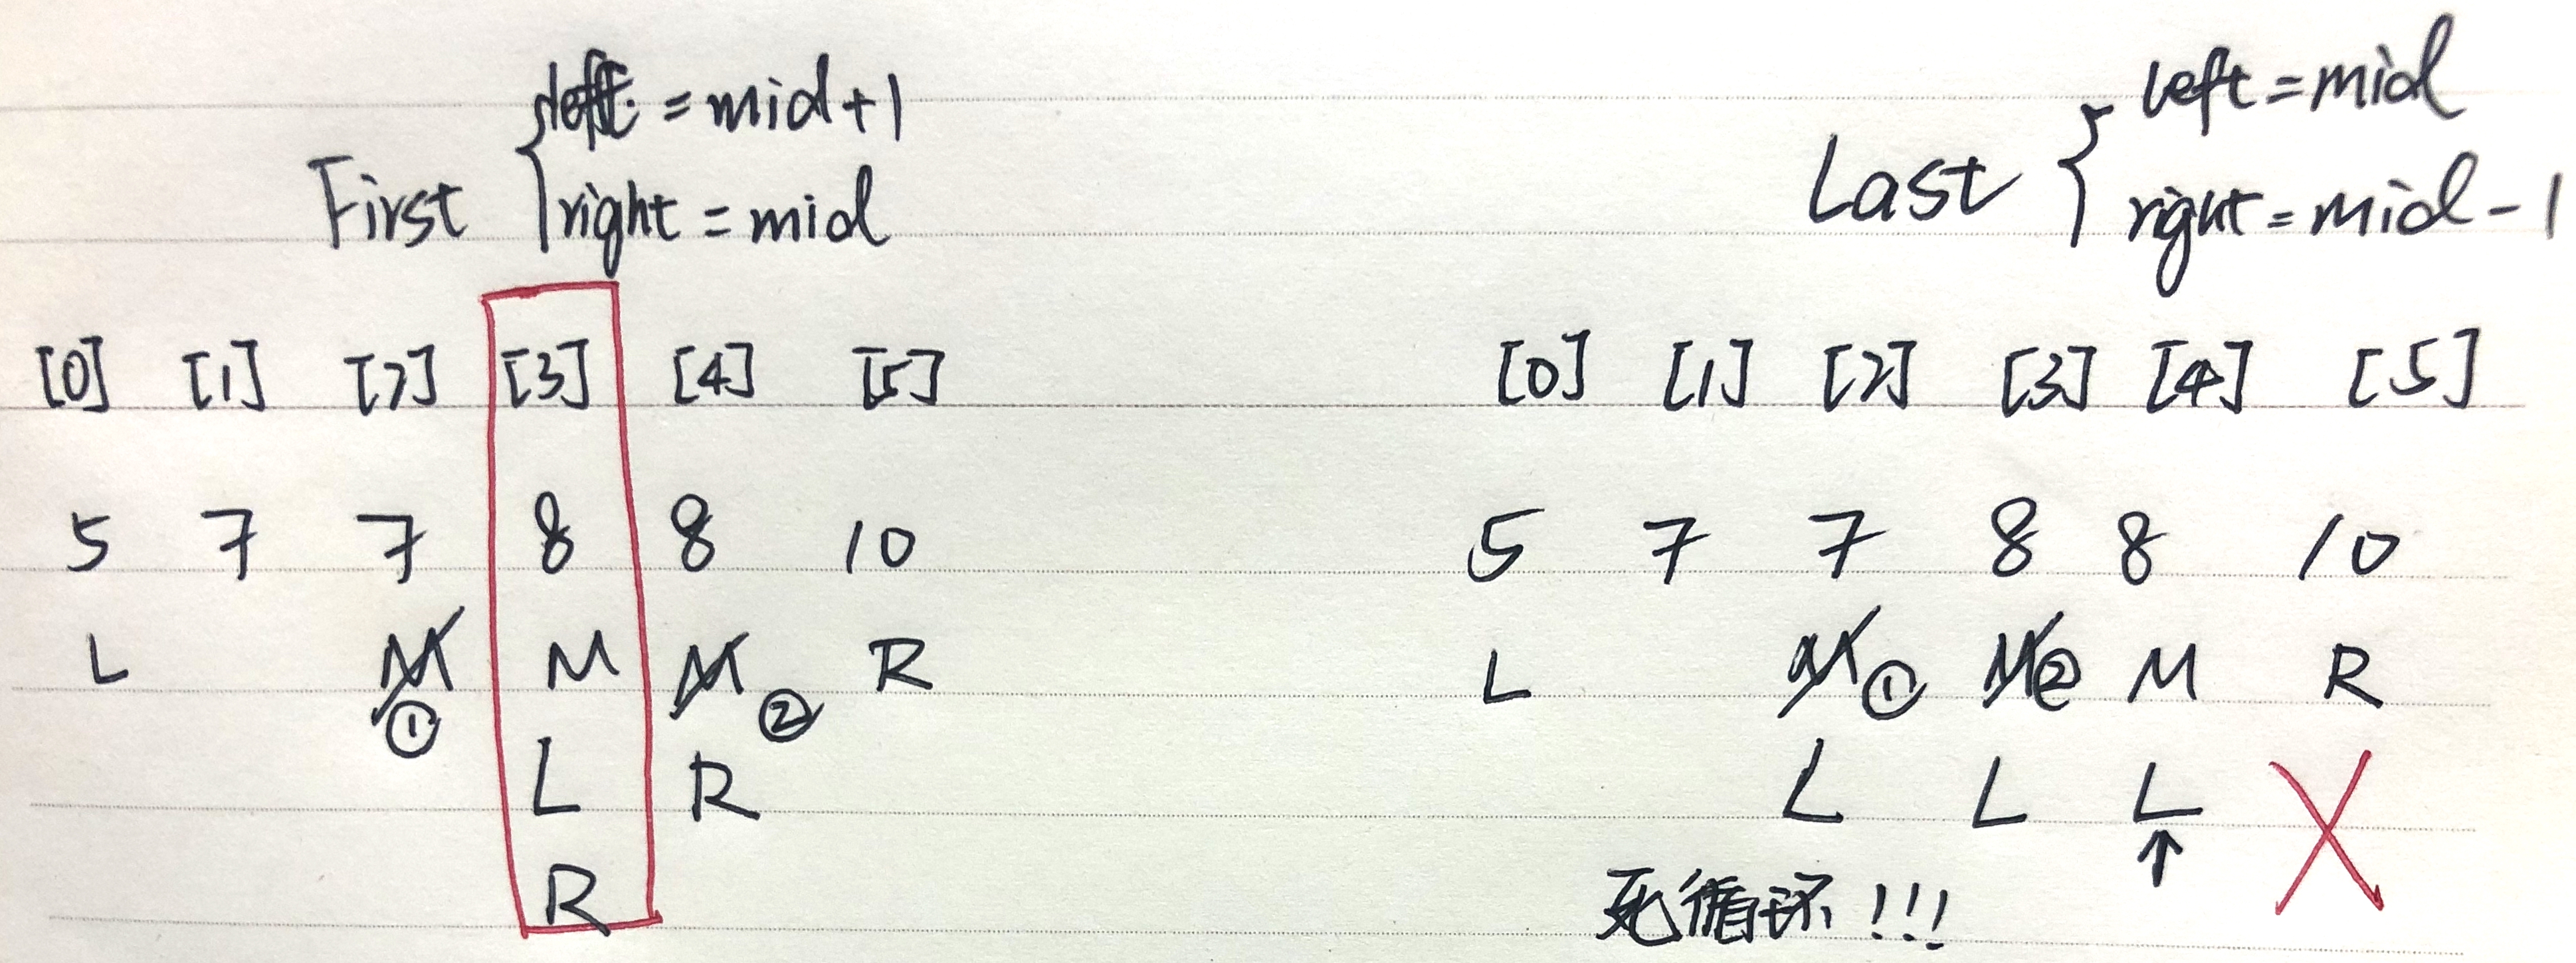 First { left = mid+1
right = mid
[0] [1] [2] [3] [4] [5]
5 7 7 8 8 10
L M M M R
① ②
L R
R
Last { left = mid
right = mid-1
[0] [1] [2] [3] [4] [5]
5 7 7 8 8 10
L M① M② M R
L L L
↑
死循环!!!